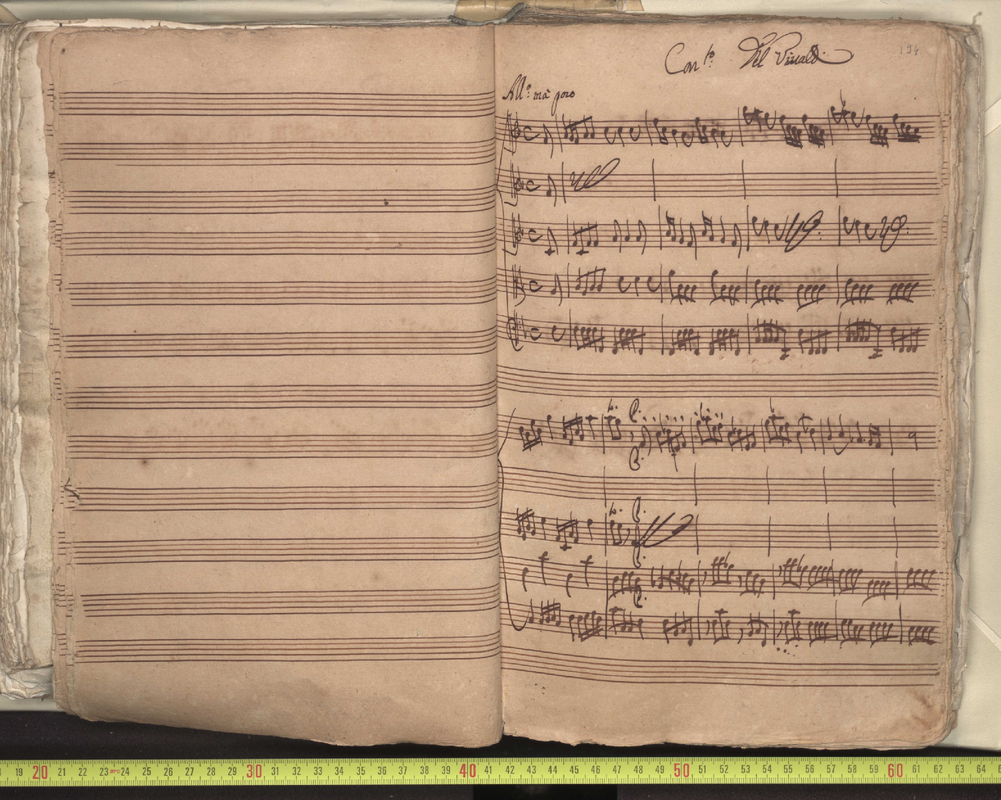 Con.to Del Vivaldi
194
All.o mà poco
20 21 22 23 24 25 26 27 28 29 30 31 32 33 34 35 36 37 38 39 40 41 42 43 44 45 46 47 48 49 50 51 52 53 54 55 56 57 58 59 60 61 62 63 64